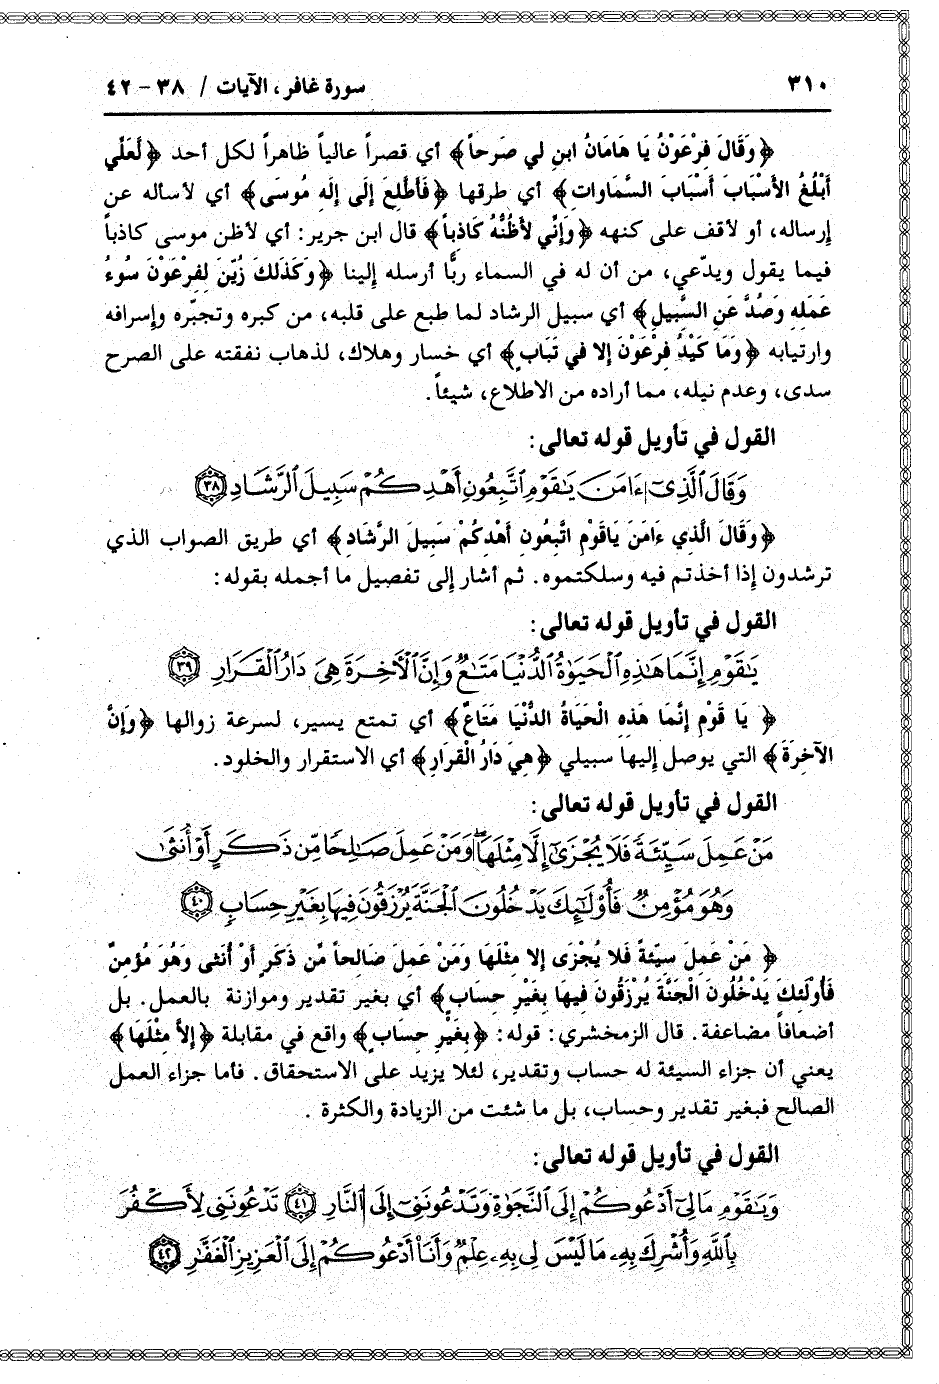 ٣١٠
سورة غافر، الآيات / ٣٨ - ٤٢
﴿وَقَالَ فِرْعَوْنُ يَا هَامَانُ ابنِ لي صَرحاً﴾ أي قصراً عالياً ظاهراً لكل أحد ﴿لَعَلّي
أَبْلُغُ الأَسْبَابَ أَسْبَابَ السَّمَاوات﴾ أي طرقها ﴿فَأَطَّلِعَ إِلَى إِلَهِ مُوسَى﴾ أي لأسأله عن
إرساله، أو لأقف على كنهه ﴿وَإِنِّي لأَظُنُّهُ كَاذِباً﴾ قال ابن جرير: أي لأظن موسى كاذباً
فيما يقول ويدّعي، من أن له في السماء ربًّا أرسله إلينا ﴿وَكَذَلكَ زُيّنَ لِفرْعَوْنَ سُوءُ
عَمَلِهِ وَصُدَّ عَنِ السَّبِيلِ﴾ أي سبيل الرشاد لما طبع على قلبه، من كبره وتجبّره وإسرافه
وارتيابه ﴿وَمَا كَيْدُ فِرْعَوْنَ إلا في تَبَابٍ﴾ أي خسار وهلاك، لذهاب نفقته على الصرح
سدى، وعدم نيله، مما أراده من الاطلاع، شيئاً.
القول في تأويل قوله تعالى:
وَقَالَ ٱلَّذِىٓ ءَامَنَ يَٰقَوْمِ ٱتَّبِعُونِ أَهْدِكُمْ سَبِيلَ ٱلرَّشَادِ ٣٨
﴿وَقَالَ الَّذِي ءَامَنَ يَاقَوْمِ اتَّبِعُونِ أَهْدِكُمْ سَبِيلَ الرَّشَادِ﴾ أي طريق الصواب الذي
ترشدون إذا أخذتم فيه وسلكتموه. ثم أشار إلى تفصيل ما أجمله بقوله:
القول في تأويل قوله تعالى:
يَٰقَوْمِ إِنَّمَا هَٰذِهِ ٱلْحَيَوٰةُ ٱلدُّنْيَا مَتَٰعٌ وَإِنَّ ٱلْآخِرَةَ هِىَ دَارُ ٱلْقَرَارِ ٣٩
﴿يَا قَوْمِ إِنَّمَا هَذِهِ الْحَيَاةُ الدُّنْيَا مَتَاعٌ﴾ أي تمتع يسير، لسرعة زوالها ﴿وَإِنَّ
الآخِرَةَ﴾ التي يوصل إليها سبيلي ﴿هِيَ دَارُ الْقَرَارِ﴾ أي الاستقرار والخلود.
القول في تأويل قوله تعالى:
مَنْ عَمِلَ سَيِّئَةً فَلَا يُجْزَىٰٓ إِلَّا مِثْلَهَا ۖ وَمَنْ عَمِلَ صَٰلِحًا مِّن ذَكَرٍ أَوْ أُنثَىٰ
وَهُوَ مُؤْمِنٌ فَأُو۟لَٰٓئِكَ يَدْخُلُونَ ٱلْجَنَّةَ يُرْزَقُونَ فِيهَا بِغَيْرِ حِسَابٍ ٤٠
﴿مَنْ عَمِلَ سَيِّئَةً فَلا يُجْزَى إلا مِثْلَهَا وَمَنْ عَمِلَ صَالِحاً مَّن ذَكَرٍ أَوْ أُنثى وَهُوَ مُؤمِنٌ
فَأُوْلَئِكَ يَدْخُلُونَ الْجَنَّةَ يُرْزَقُونَ فِيهَا بِغَيْرِ حِسَابٍ﴾ أي بغير تقدير وموازنة بالعمل. بل
أضعافاً مضاعفة. قال الزمخشري: قوله: ﴿بِغَيْرِ حِسَابٍ﴾ واقع في مقابلة ﴿إلاَّ مِثْلَهَا﴾
يعني أن جزاء السيئة له حساب وتقدير، لئلا يزيد على الاستحقاق. فأما جزاء العمل
الصالح فبغير تقدير وحساب، بل ما شئت من الزيادة والكثرة .
القول في تأويل قوله تعالى:
وَيَٰقَوْمِ مَا لِىٓ أَدْعُوكُمْ إِلَى ٱلنَّجَوٰةِ وَتَدْعُونَنِىٓ إِلَى ٱلنَّارِ ٤١ تَدْعُونَنِى لِأَكْفُرَ
بِٱللَّهِ وَأُشْرِكَ بِهِۦ مَا لَيْسَ لِى بِهِۦ عِلْمٌ وَأَنَا۠ أَدْعُوكُمْ إِلَى ٱلْعَزِيزِ ٱلْغَفَّٰرِ ٤٢